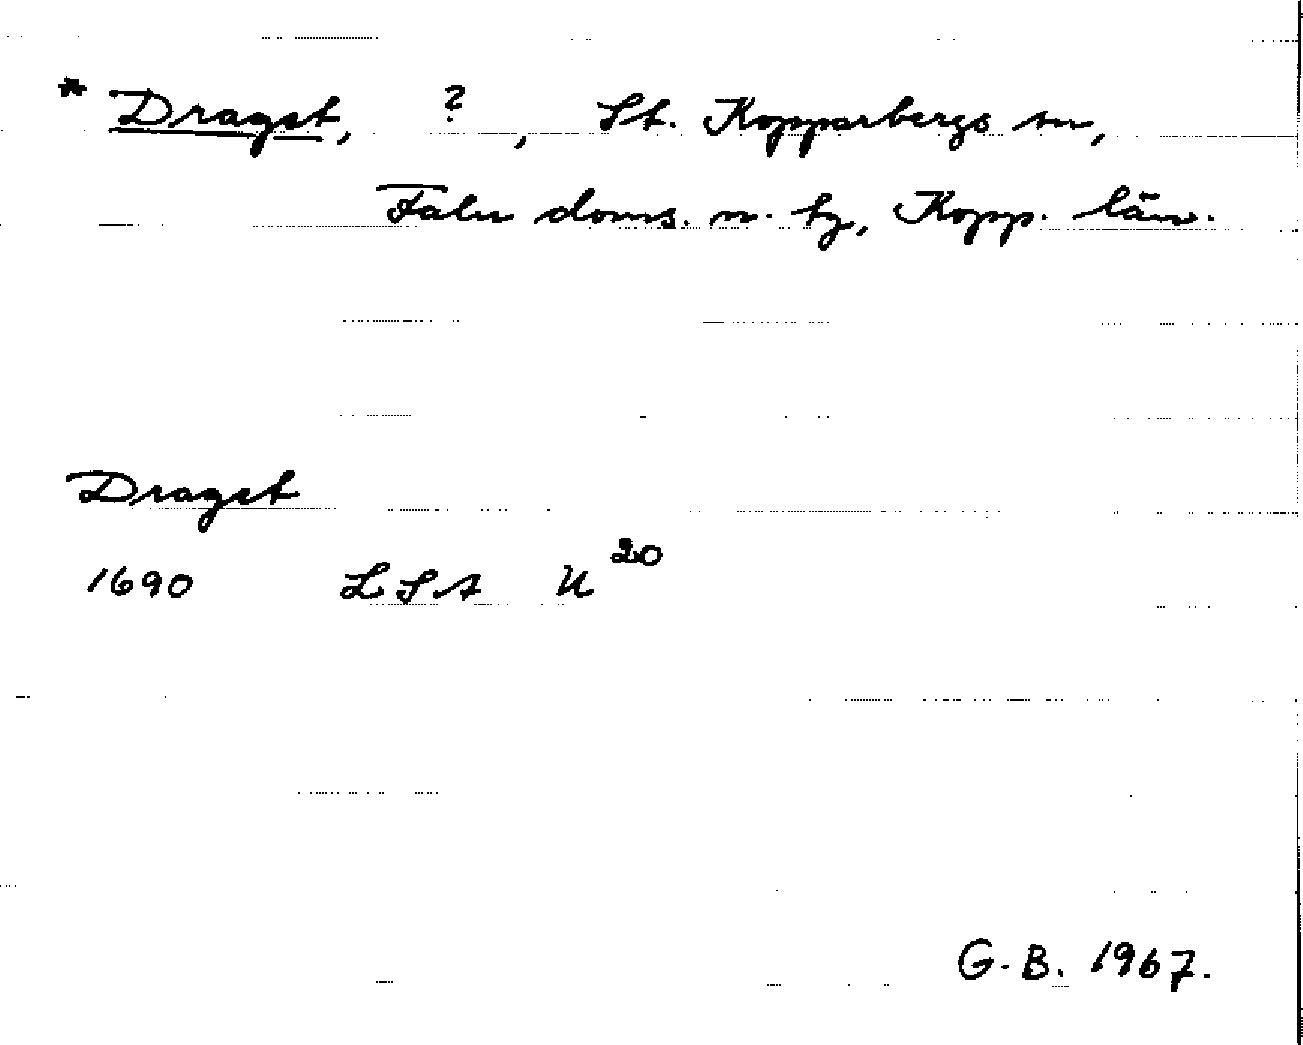 * Dragst, ?, St. Kopparbergs sn,
Falu doms. n. tg, Kopp. län.
Dragst
1690 LSA U 20
G.B. 1967.